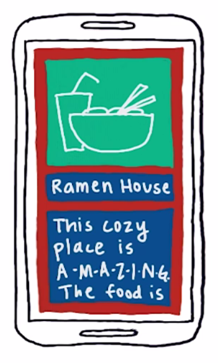 Ramen House
This cozy
place is
A-M-A-Z-I-N-G.
The food is